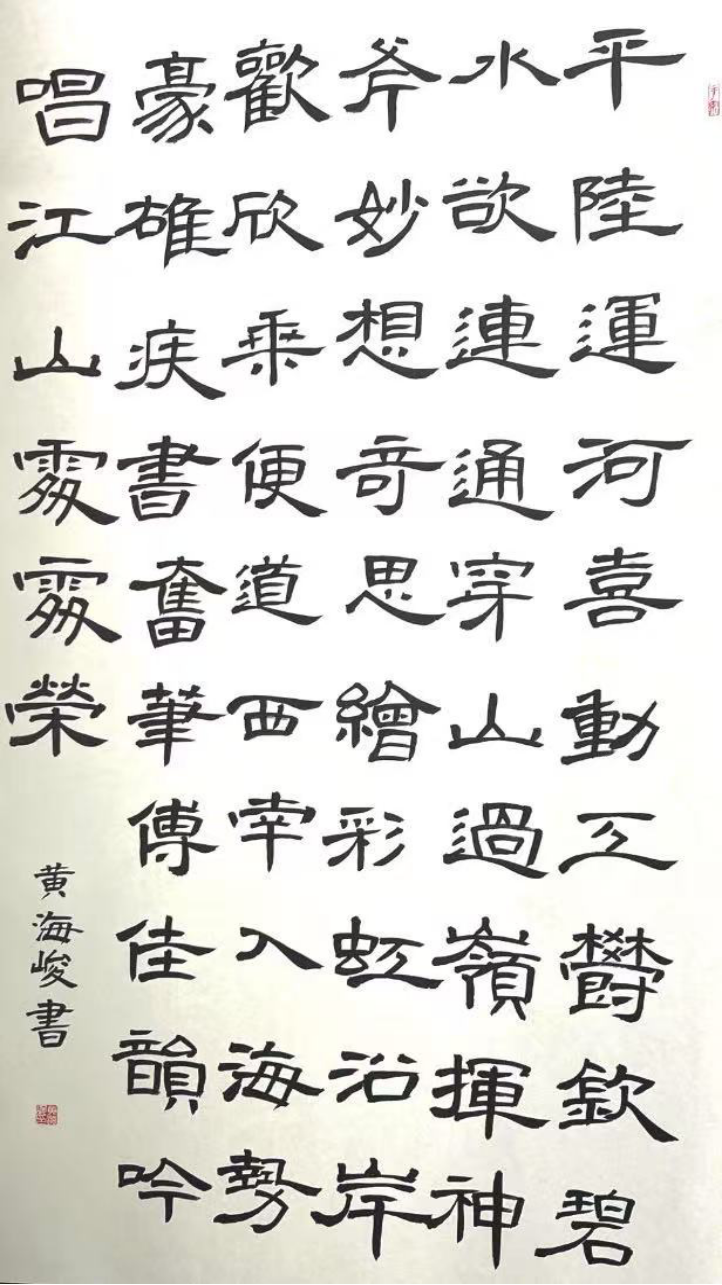 平陸運河喜動工欝欽碧
水欲連通穿山過嶺揮神
斧妙想奇思繪彩虹沿岸
歡欣乘便道西南入海勢
豪雄疾書奮筆傳佳韻吟
唱江山處處榮
黄海峻書